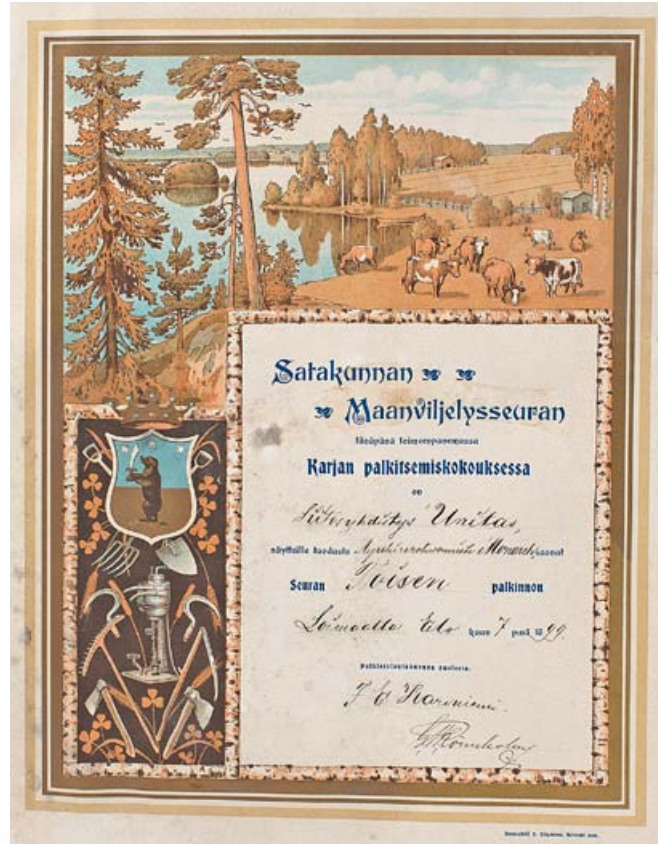 Satakunnan
Maanviljelysseuran
tänäpänä toimeenpanemassa
Karjan palkitsemiskokouksessa
on
Siitosyhdistys Unitas,
näytteille tuodusta Ayrshirerotuisesta Monarch saanut
Seuran Toisen palkinnon
Loimaalla Elo kuun 7 p:nä 1899.
Palkintolautakunnan puolesta:
J E